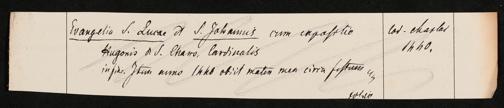 Evangelia S. Lucae et S. Johannis cum expositio
Hugonis de S. Charo, Cardinalis
in fine. Item anno 1440 obiit mater mea circa festum
cod. chartac.
1440.